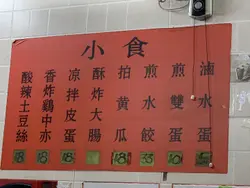 小食
滷水蛋
煎雙蛋 10
煎水餃 33
拍黃瓜 18
酥炸大腸
涼拌皮蛋 18
香炸鷄中亦 18
酸辣土豆絲 18